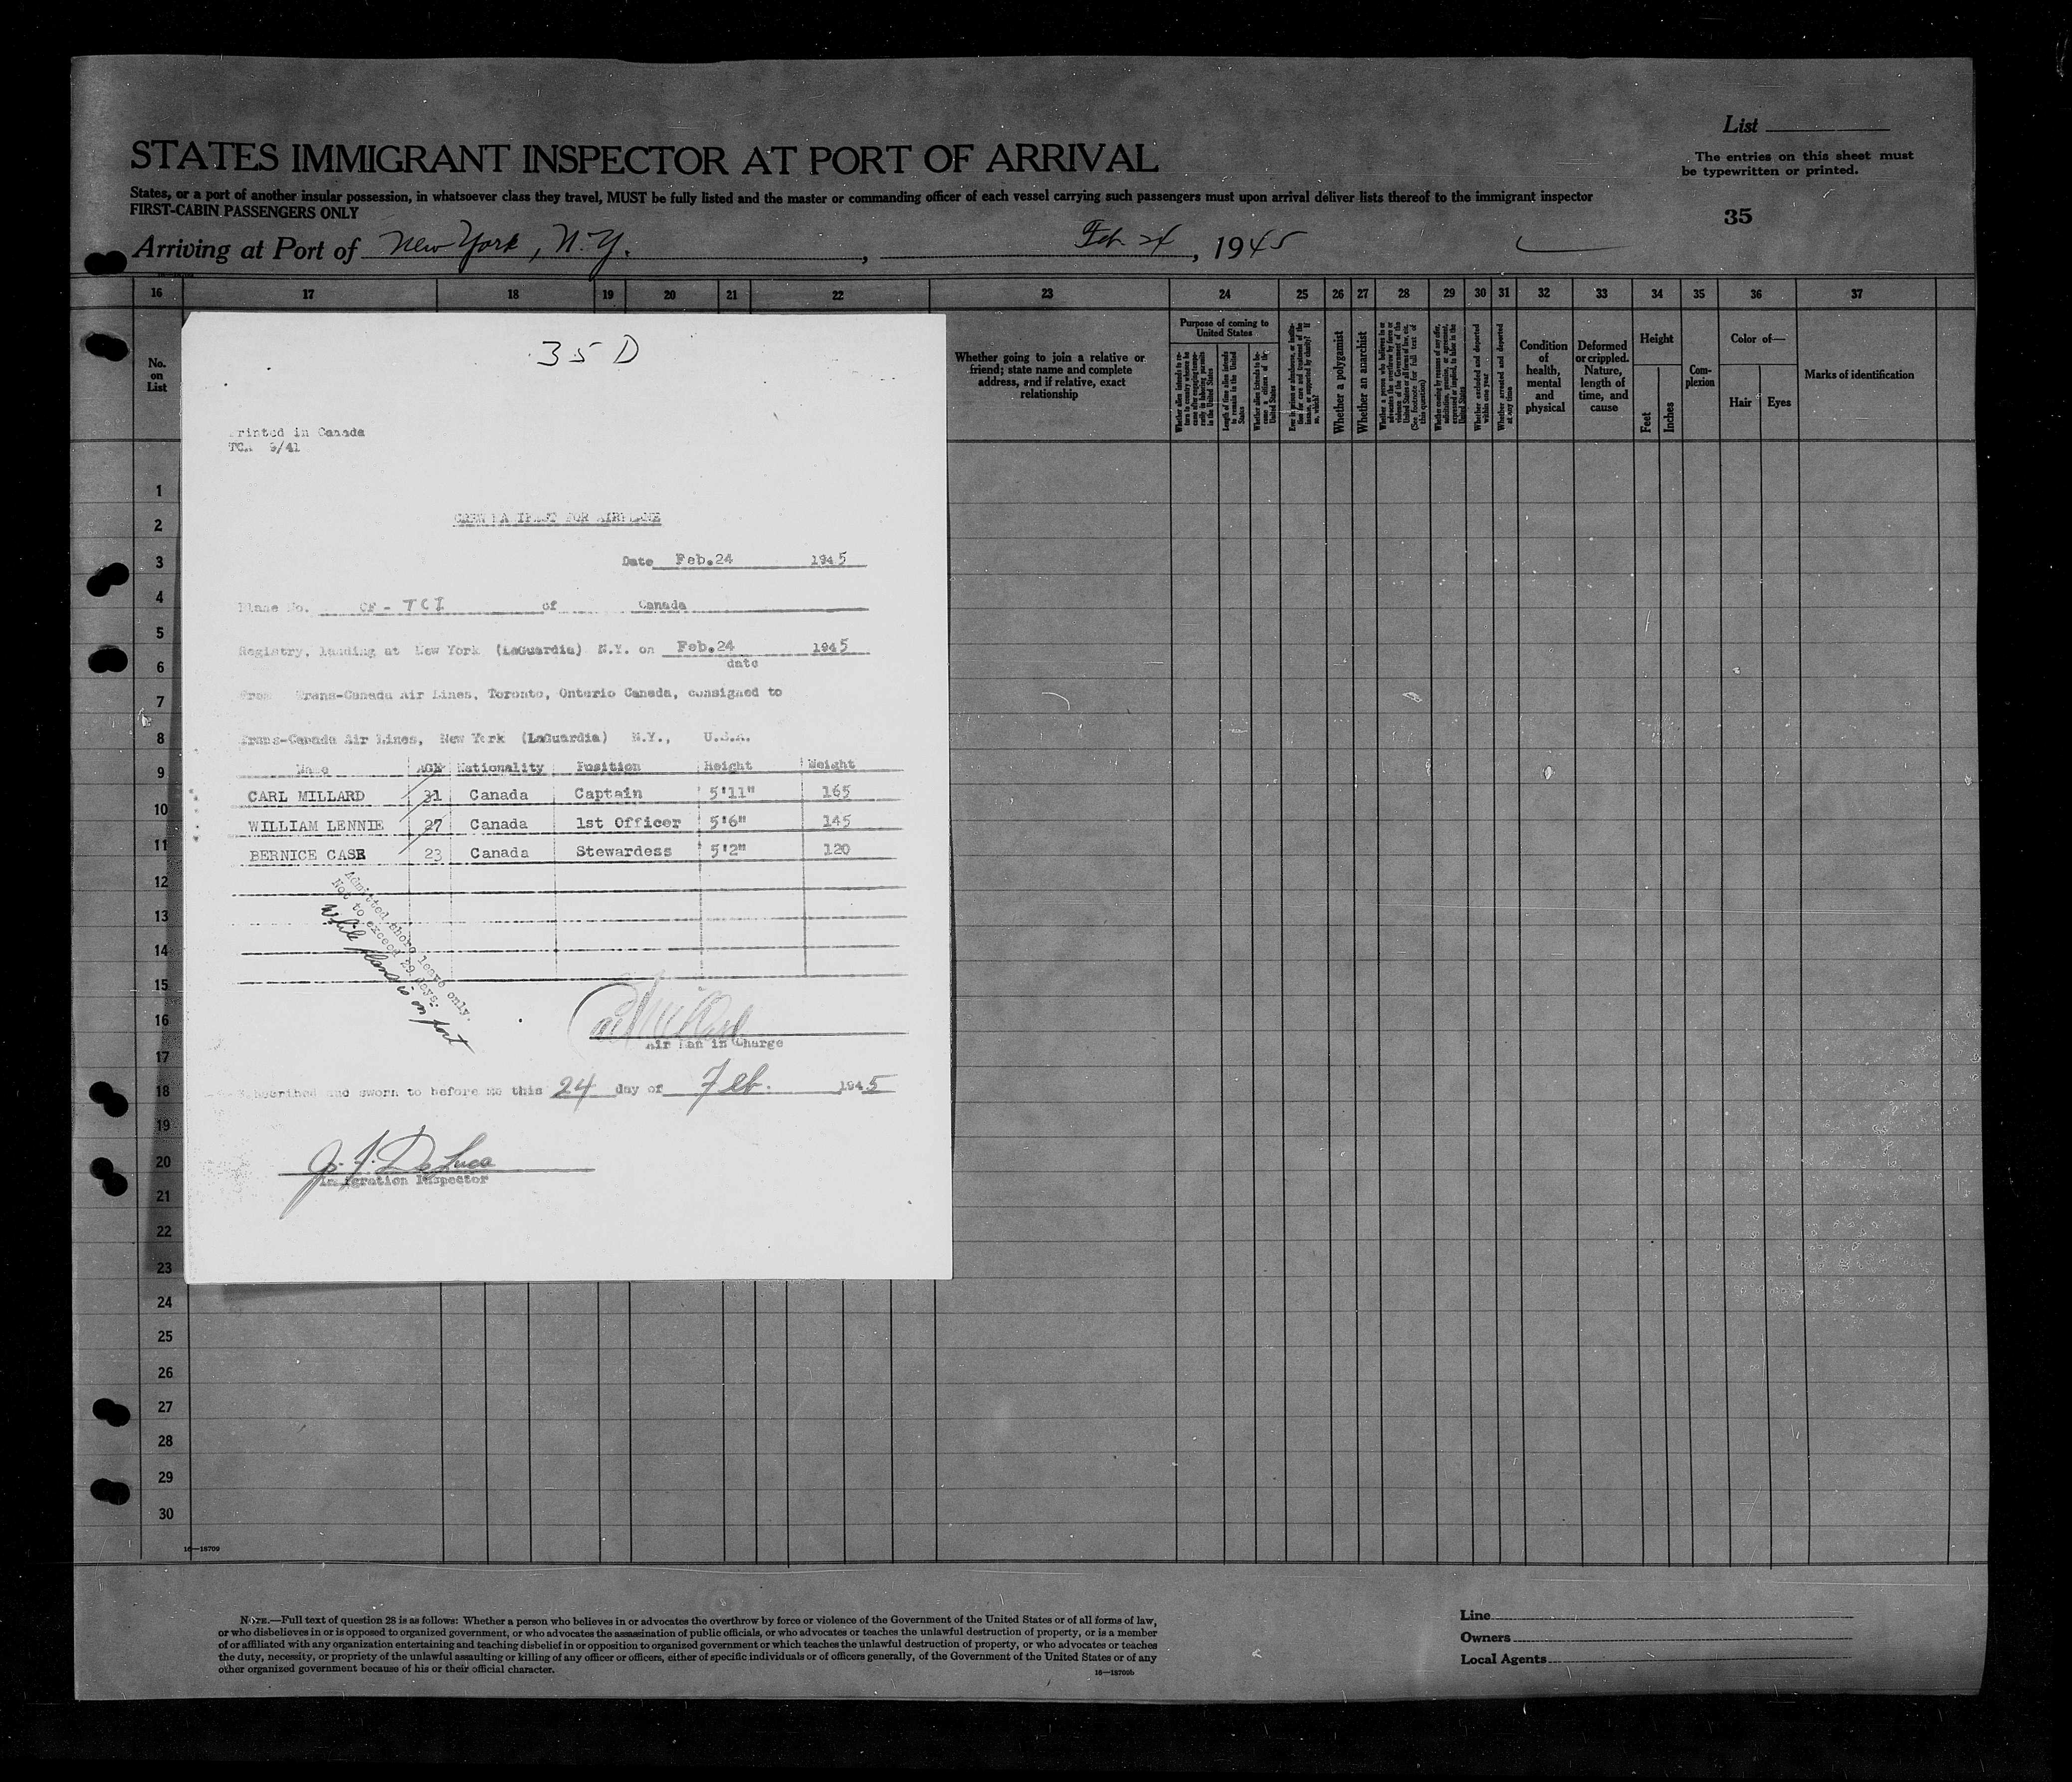 List
STATES IMMIGRANT INSPECTOR AT PORT OF ARRIVAL
The entries on this sheet must
be typewritten or printed.
States, or a port of another insular possession, in whatsoever class they travel, MUST be fully listed and the master or commanding officer of each vessel carrying such passengers must upon arrival deliver lists thereof to the immigrant inspector
FIRST-CABIN PASSENGERS ONLY
35
Arriving at Port of New York, N.Y. , Feb 24 , 1945
16 17 18 19 20 21 22 23 24 25 26 27 28 29 30 31 32 33 34 35 36 37
No.
on
List
Whether going to join a relative or
friend; state name and complete
address, and if relative, exact
relationship
Purpose of coming to
United States
Whether a polygamist
Whether an anarchist
Whether excluded and deported
within one year
Whether arrested and deported
at any time
Condition
of
health,
mental
and
physical
Deformed
or crippled.
Nature,
length of
time, and
cause
Height
Feet
Inches
Com-
plexion
Color of—
Hair
Eyes
Marks of identification
35 D
Printed in Canada
TCA 9/41
CREW MANIFEST FOR AIRPLANE
Date Feb.24 1945
Plane No. CF - TCI of Canada
Registry, landing at New York (LaGuardia) N.Y. on Feb.24 1945
date
From Trans-Canada Air Lines, Toronto, Ontario Canada, consigned to
Trans-Canada Air Lines, New York (LaGuardia) N.Y., U.S.A.
Name AGE Nationality Position Height Weight
CARL MILLARD 31 Canada Captain 5'11" 165
WILLIAM LENNIE 27 Canada 1st Officer 5'6" 145
BERNICE CASE 23 Canada Stewardess 5'2" 120
Admitted shore leave only.
Not to exceed 29 days.
While plane is in port
Carl Millard
Air Man in Charge
Subscribed and sworn to before me this 24 day of Feb. 1945
J. F. DeLuca
Immigration Inspector
1
2
3
4
5
6
7
8
9
10
11
12
13
14
15
16
17
18
19
20
21
22
23
24
25
26
27
28
29
30
16—18709
NOTE.—Full text of question 28 is as follows: Whether a person who believes in or advocates the overthrow by force or violence of the Government of the United States or of all forms of law,
or who disbelieves in or is opposed to organized government, or who advocates the assassination of public officials, or who advocates or teaches the unlawful destruction of property, or is a member
of or affiliated with any organization entertaining and teaching disbelief in or opposition to organized government or which teaches the unlawful destruction of property, or who advocates or teaches
the duty, necessity, or propriety of the unlawful assaulting or killing of any officer or officers, either of specific individuals or of officers generally, of the Government of the United States or of any
other organized government because of his or their official character.
16—18709b
Line
Owners
Local Agents